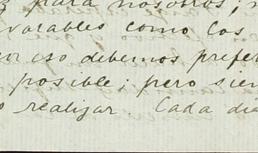 para nosotros;
varables como los
eso debemos prefer
posible; pero sien
realizar Cada dia